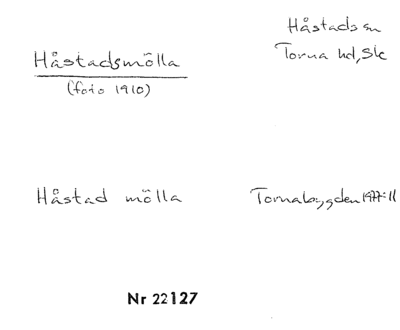 Håstads sn
Torna hd, Sk
Håstadsmölla
(foto 1910)
Håstad mölla
Tornabygden 1977:11
Nr 22127